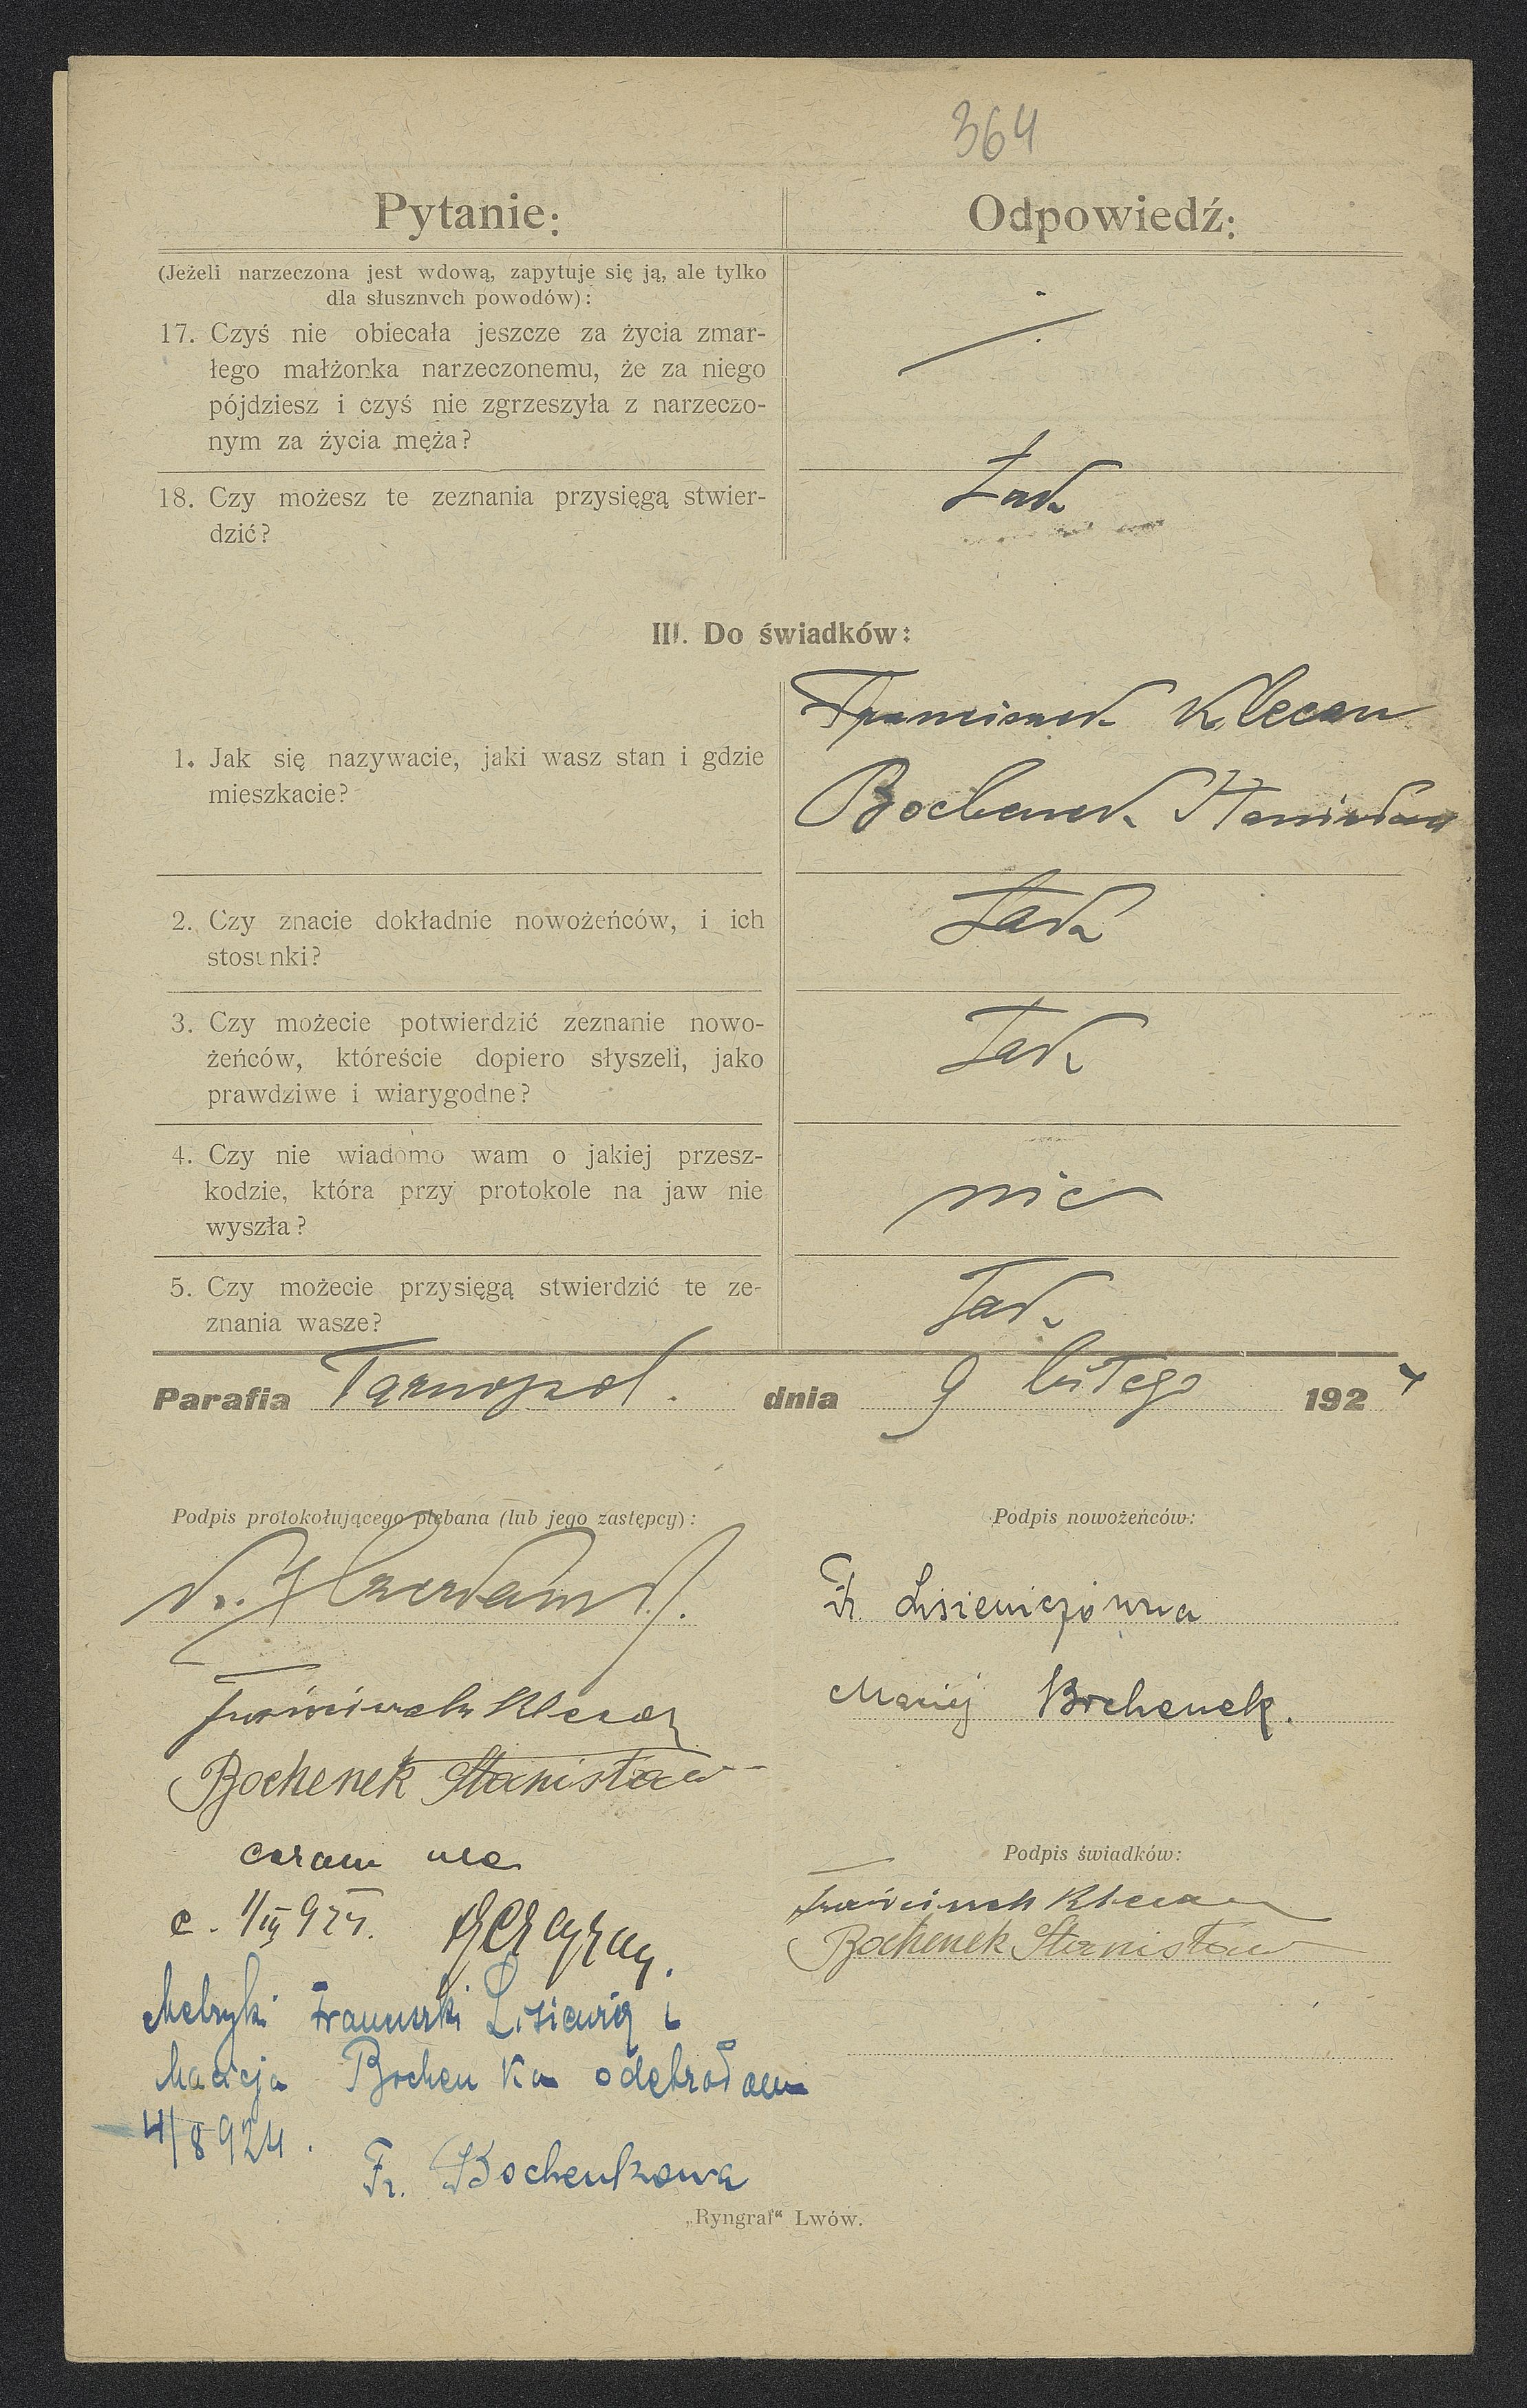 364
Pytanie:
Odpowiedź:
(Jeżeli narzeczona jest wdową, zapytuje się ją, ale tylko
dla słusznych powodów):
17. Czyś nie obiecała jeszcze za życia zmar-
łego małżonka narzeczonemu, że za niego
pójdziesz i czyś nie zgrzeszyła z narzeczo-
nym za życia męża?
18. Czy możesz te zeznania przysięgą stwier-
dzić?
Tak
III. Do świadków:
1. Jak się nazywacie, jaki wasz stan i gdzie
mieszkacie?
Franciszek Klecan
Bochenek Stanisław
2. Czy znacie dokładnie nowożeńców, i ich
stosunki?
Tak
3. Czy możecie potwierdzić zeznanie nowo-
żeńców, któreście dopiero słyszeli, jako
prawdziwe i wiarygodne?
Tak
4. Czy nie wiadomo wam o jakiej przesz-
kodzie, która przy protokole na jaw nie
wyszła?
nie
5. Czy możecie przysięgą stwierdzić te ze-
znania wasze?
Tak
Parafia Tarnopol. dnia 9 lutego 192
Podpis protokołującego plebana (lub jego zastępcy):
Franciszek
Bochenek Stanisław
coram me
Metryki Franciszki Lisiewicz i
Macieja Bochenka odebrałam
4/8 924.
Fr. Bochenkowa
Podpis nowożeńców:
Fr. Lisiewiczówna
Maciej Bochenek.
Podpis świadków:
Franciszek Klecan
Bochenek Stanisław
„Ryngraf“ Lwów.